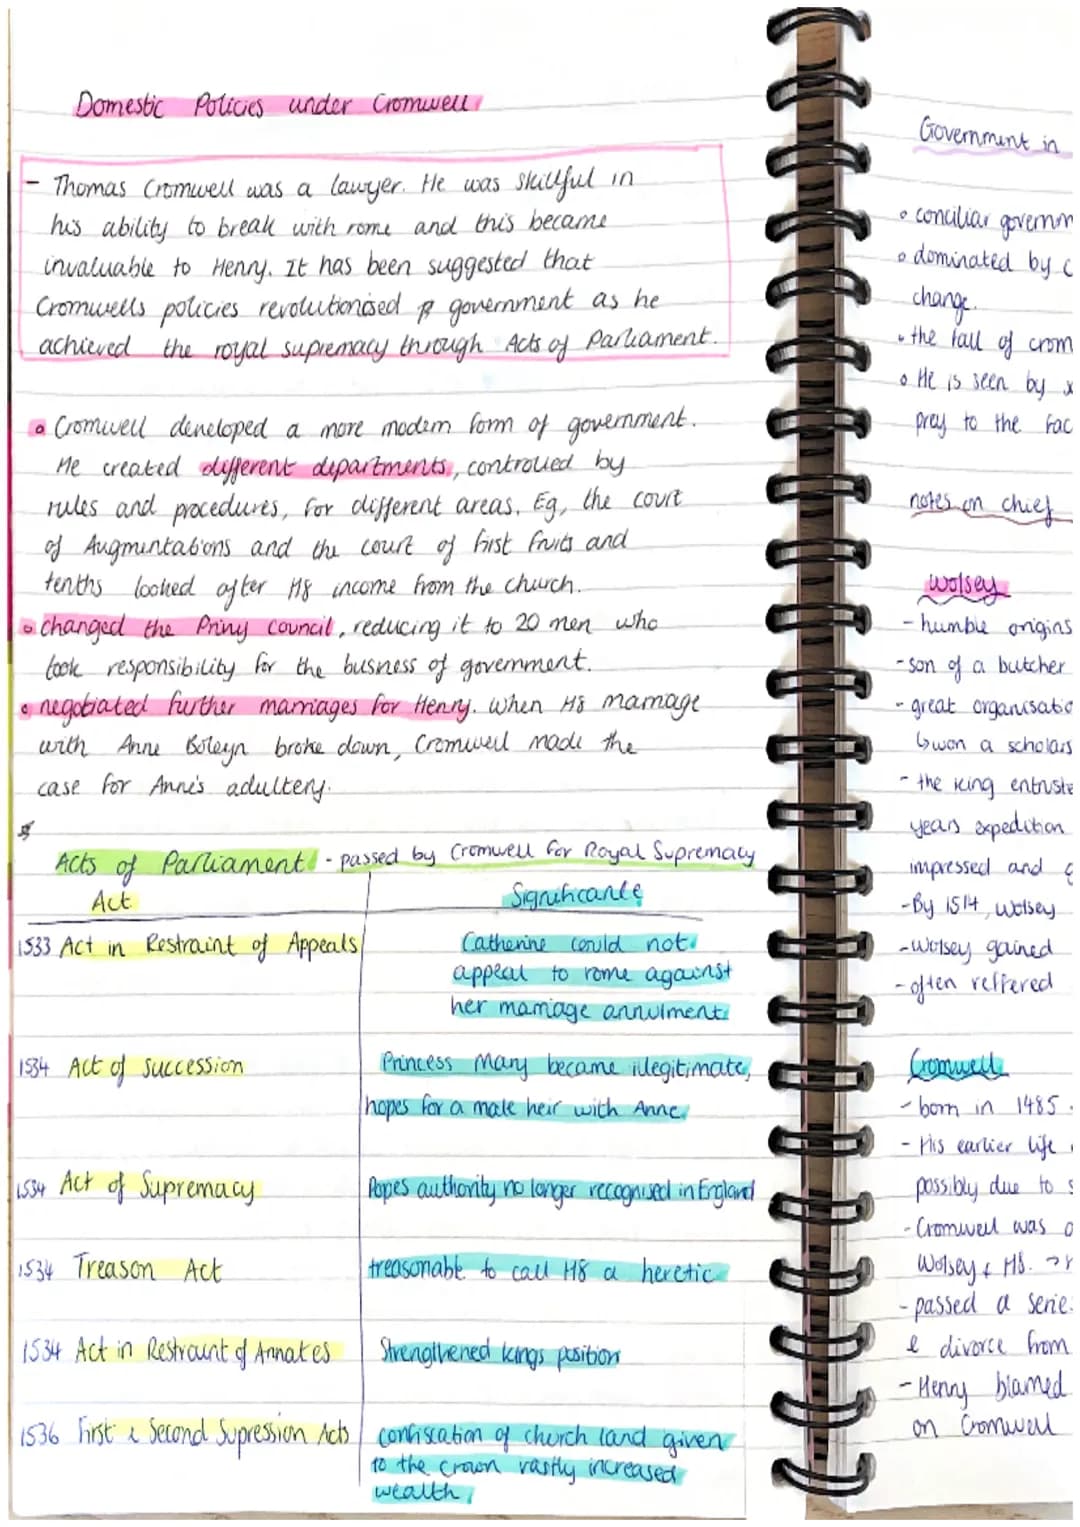 Domestic Policies under Cromwell
- Thomas Cromwell was a lawyer. He was skillful in
his ability to break with rome and this became
invaluable to Henry. It has been suggested that
Cromwells policies revolutionised government as he
achieved the royal supremacy through Acts of Parliament.
Cromwell developed a more modern form of government.
He created different departments, controlled by
rules and procedures, for different areas. Eg, the court
of Augmentations and the court of First Fruits and
tenths looked after H8 income from the church.
changed the Privy council, reducing it to 20 men who
took responsibility for the busness of government.
negotiated further marriages for Henry. when H8 marriage
with Anne Boleyn broke down, Cromwell made the
case for Anne's adultery.
Acts of Parliament - passed by Cromwell for Royal Supremacy
Act Significance
1533 Act in Restraint of Appeals
Catherine could not
appeal to rome against
her marriage annulment
1534 Act of succession
Princess Mary became illegitimate,
hopes for a male heir with Anne
1534 Act of Supremacy
Popes authority no longer recognised in England
1534 Treason Act
treasonable to call H8 a heretic
1534 Act in Restraint of Annates
Strengthened kings position
1536 First & Second Supression Acts
confiscation of church land given
to the crown vastly increased
wealth
Government in
conciliar governm
dominated by c
change.
the fall of crom
He is seen by
prey to the fac
notes on chief
Wolsey
- humble origins
- son of a butcher
- great organisatio
won a scholars
- the king entruste
years expedition
impressed and g
- By 1514, Wolsey
- Wolsey gained
- often reffered
Cromwell
- born in 1485
- His earlier life
possibly due to s
- Cromwell was a
Wolsey & H8.
- passed a serie
& divorce from
- Henry blamed
on Cromwell